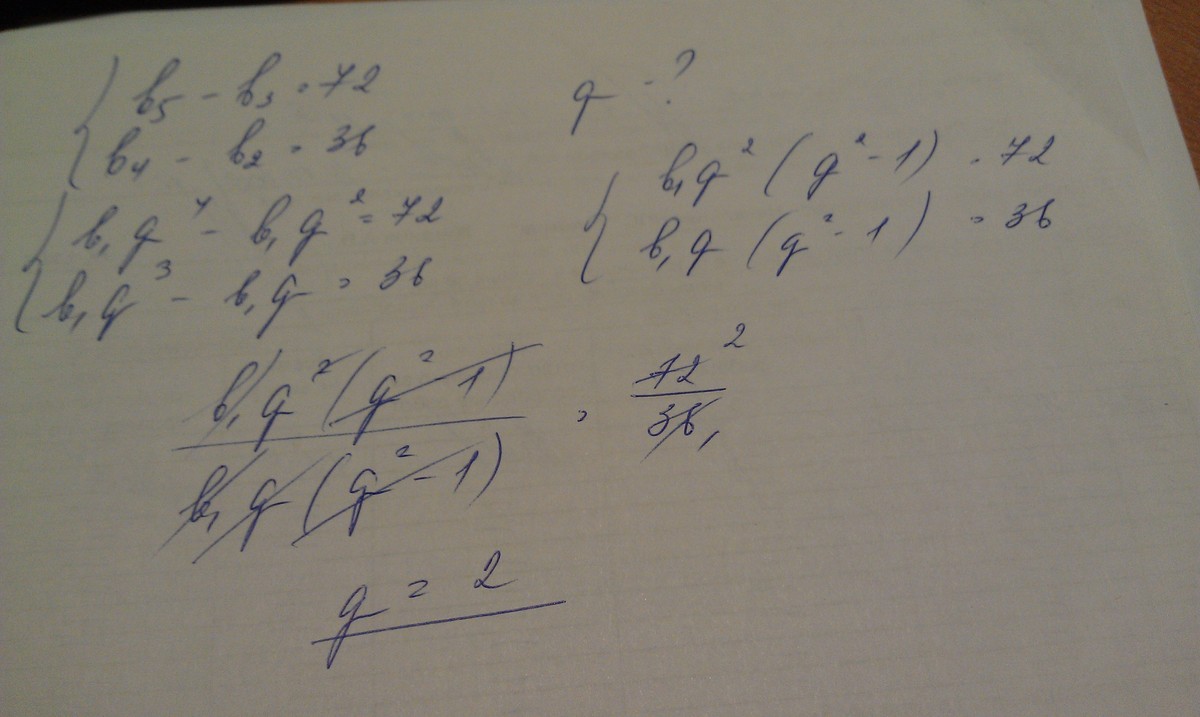 b₅ - b₃ = 72
b₄ - b₂ = 36
q - ?
b₁q⁴ - b₁q² = 72
b₁q³ - b₁q = 36
b₁q²(q² - 1) = 72
b₁q(q² - 1) = 36
b₁q²(q² - 1) = 72 2
b₁q(q² - 1) 36 1
q = 2